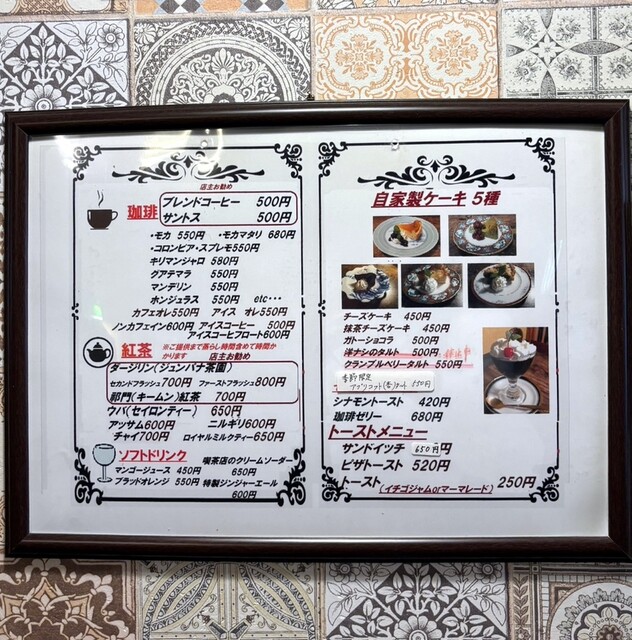 店主お勧め
珈琲
ブレンドコーヒー 500円
サントス 500円
・モカ 550円 ・モカマタリ 680円
・コロンビア・スプレモ550円
キリマンジャロ 580円
グアテマラ 550円
マンデリン 550円
ホンジュラス 550円 etc…
カフェオレ550円 アイス オレ550円
ノンカフェイン600円 アイスコーヒー 500円
アイスコーヒフロート600円
紅茶 ※ご提供まで蒸らし時間含めて時間か
かります 店主お勧め
ダージリン(ジュンパナ茶園)
セカンドフラッシュ700円 ファーストフラッシュ800円
祁門(キームン)紅茶 700円
ウバ(セイロンティー) 650円
アッサム600円 ニルギリ600円
チャイ700円 ロイヤルミルクティー650円
ソフトドリンク
喫茶店のクリームソーダー
650円
マンゴージュース 450円
ブラッドオレンジ 550円
特製ジンジャーエール
600円
自家製ケーキ 5種
チーズケーキ 450円
抹茶チーズケーキ 450円
ガトーショコラ 500円
洋ナシのタルト 500円
クランブルベリータルト 550円
季節限定
550円
シナモントースト 420円
珈琲ゼリー 680円
トーストメニュー
サンドイッチ 650円円
ピザトースト 520円
トースト 250円
(イチゴジャムorマーマレード)